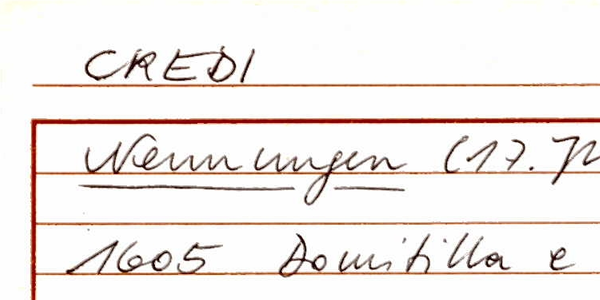 CREDI
Nennungen (17. Jh
1605 Domitilla e